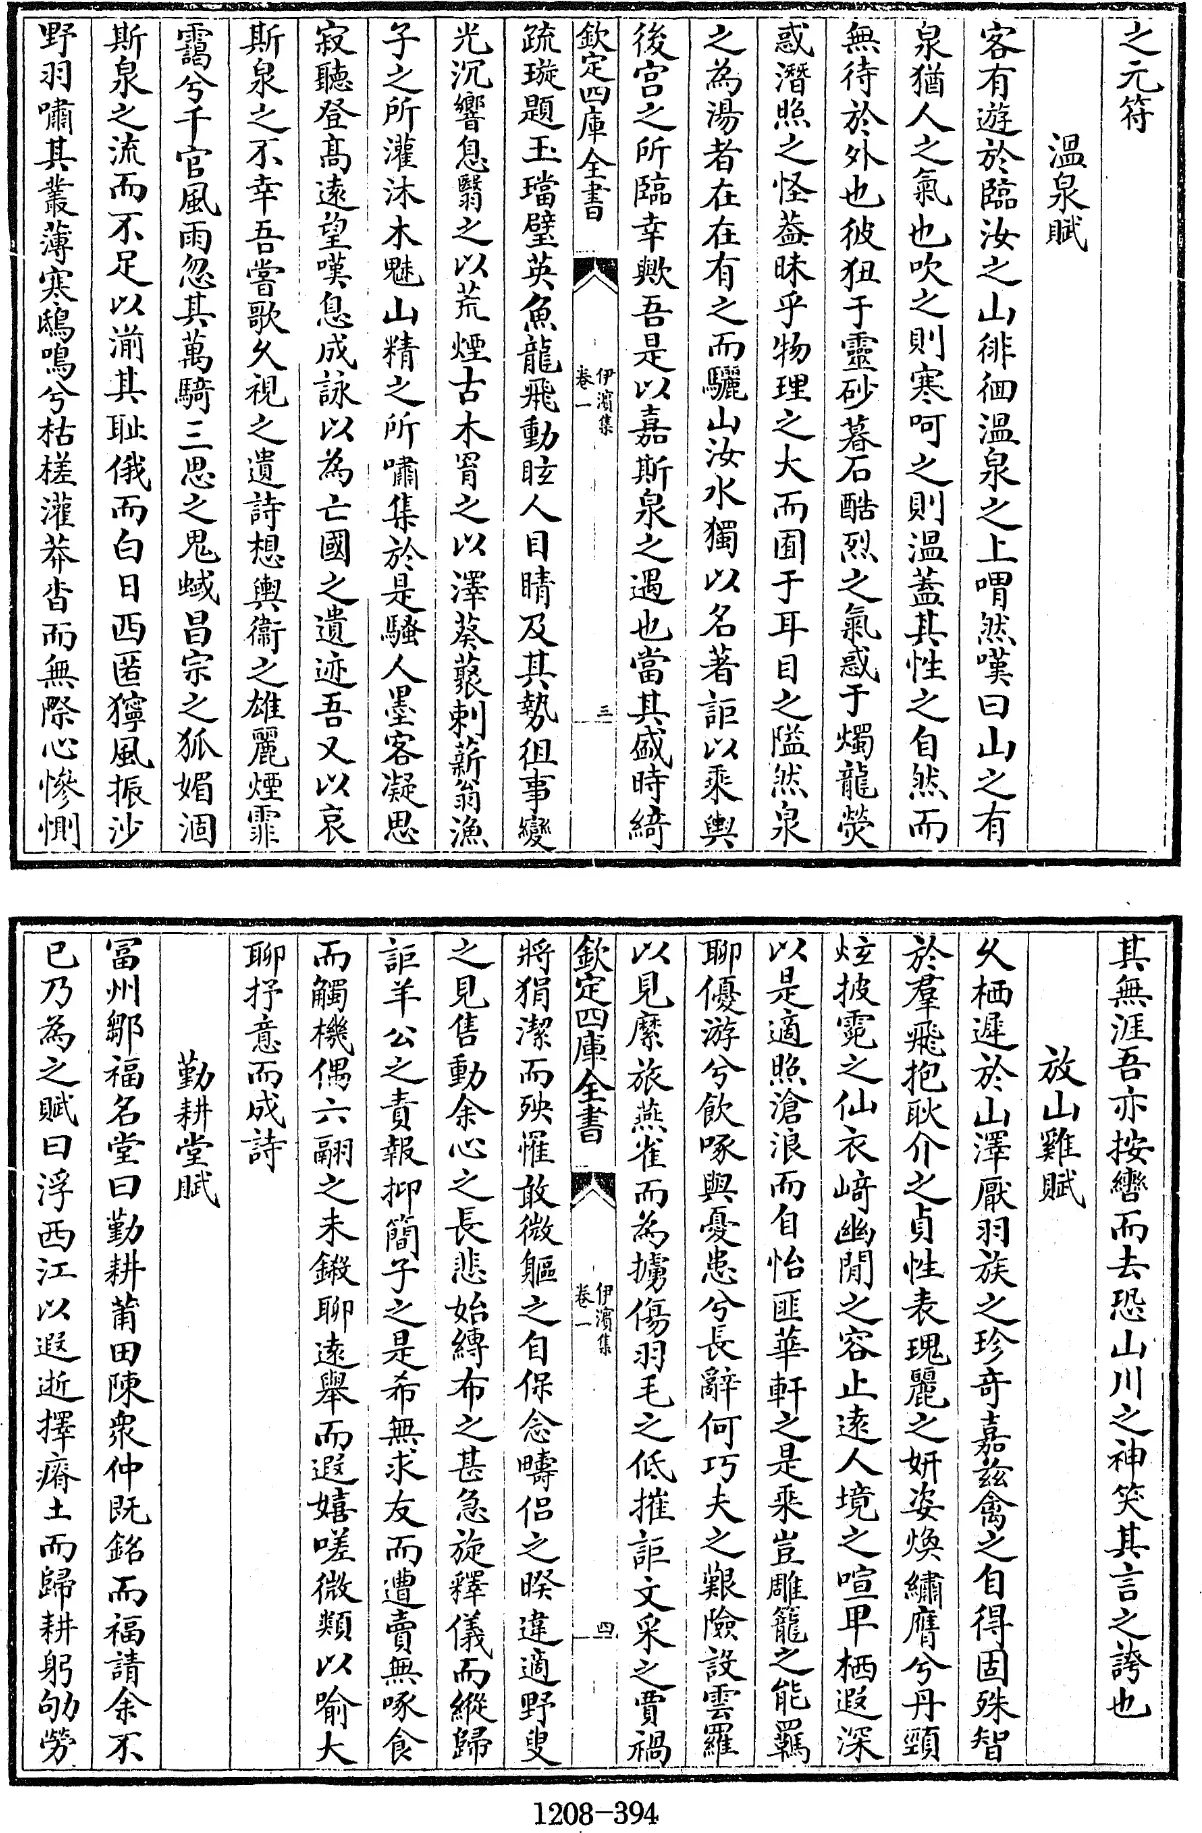 之元符
溫泉賦
客有遊於臨汝之山徘徊溫泉之上喟然嘆曰山之有
泉猶人之氣也吹之則寒呵之則溫蓋其性之自然而
無待於外也彼狃于靈砂暮石酷烈之氣惑于燭龍熒
惑潛照之怪葢昧乎物理之大而囿于耳目之隘然泉
之為湯者在在有之而驪山汝水獨以名著詎以乘輿
後宮之所臨幸歟吾是以嘉斯泉之遇也當其盛時綺
欽定四庫全書
伊濱集
卷一
三
疏璇題玉璫璧英魚龍飛動眩人目睛及其勢徂事變
光沉響息翳之以荒煙古木罥之以澤葵藂刺薪翁漁
子之所灌沐木魅山精之所嘯集於是騷人墨客凝思
寂聽登高遠望嘆息成詠以為亡國之遺迹吾又以哀
斯泉之不幸吾嘗歌久視之遺詩想輿衞之雄麗煙霏
靄兮千官風雨忽其萬騎三思之鬼蜮昌宗之狐媚涸
斯泉之流而不足以湔其耻俄而白日西匿獰風振沙
野羽嘯其叢薄寒鴟鳴兮枯槎灌莽沓而無際心慘惻
其無涯吾亦按轡而去恐山川之神笑其言之誇也
放山雞賦
久栖遲於山澤厭羽族之珍奇嘉茲禽之自得固殊智
於羣飛抱耿介之貞性表瑰麗之妍姿煥繡膺兮丹頸
炫披霓之仙衣﨑幽閒之容止遠人境之喧卑栖遐深
以是適照滄浪而自怡匪華軒之是乘豈雕籠之能羈
聊優游兮飲啄與憂患兮長辭何巧夫之艱險設雲羅
以見縻旅燕雀而為擄傷羽毛之低摧詎文采之賈禍
欽定四庫全書
伊濱集
卷一
四
將狷潔而殃罹敢微軀之自保念疇侶之暌違適野叟
之見售動余心之長悲始縛布之甚急旋釋儀而縱歸
詎羊公之責報抑簡子之是希無求友而遭賣無啄食
而觸機偶六翮之未鎩聊遠舉而遐嬉嗟微類以喻大
聊抒意而成詩
勤耕堂賦
富州鄒福名堂曰勤耕莆田陳衆仲既銘而福請余不
已乃為之賦曰浮西江以遐逝擇瘠土而歸耕躬劬勞
1208-394